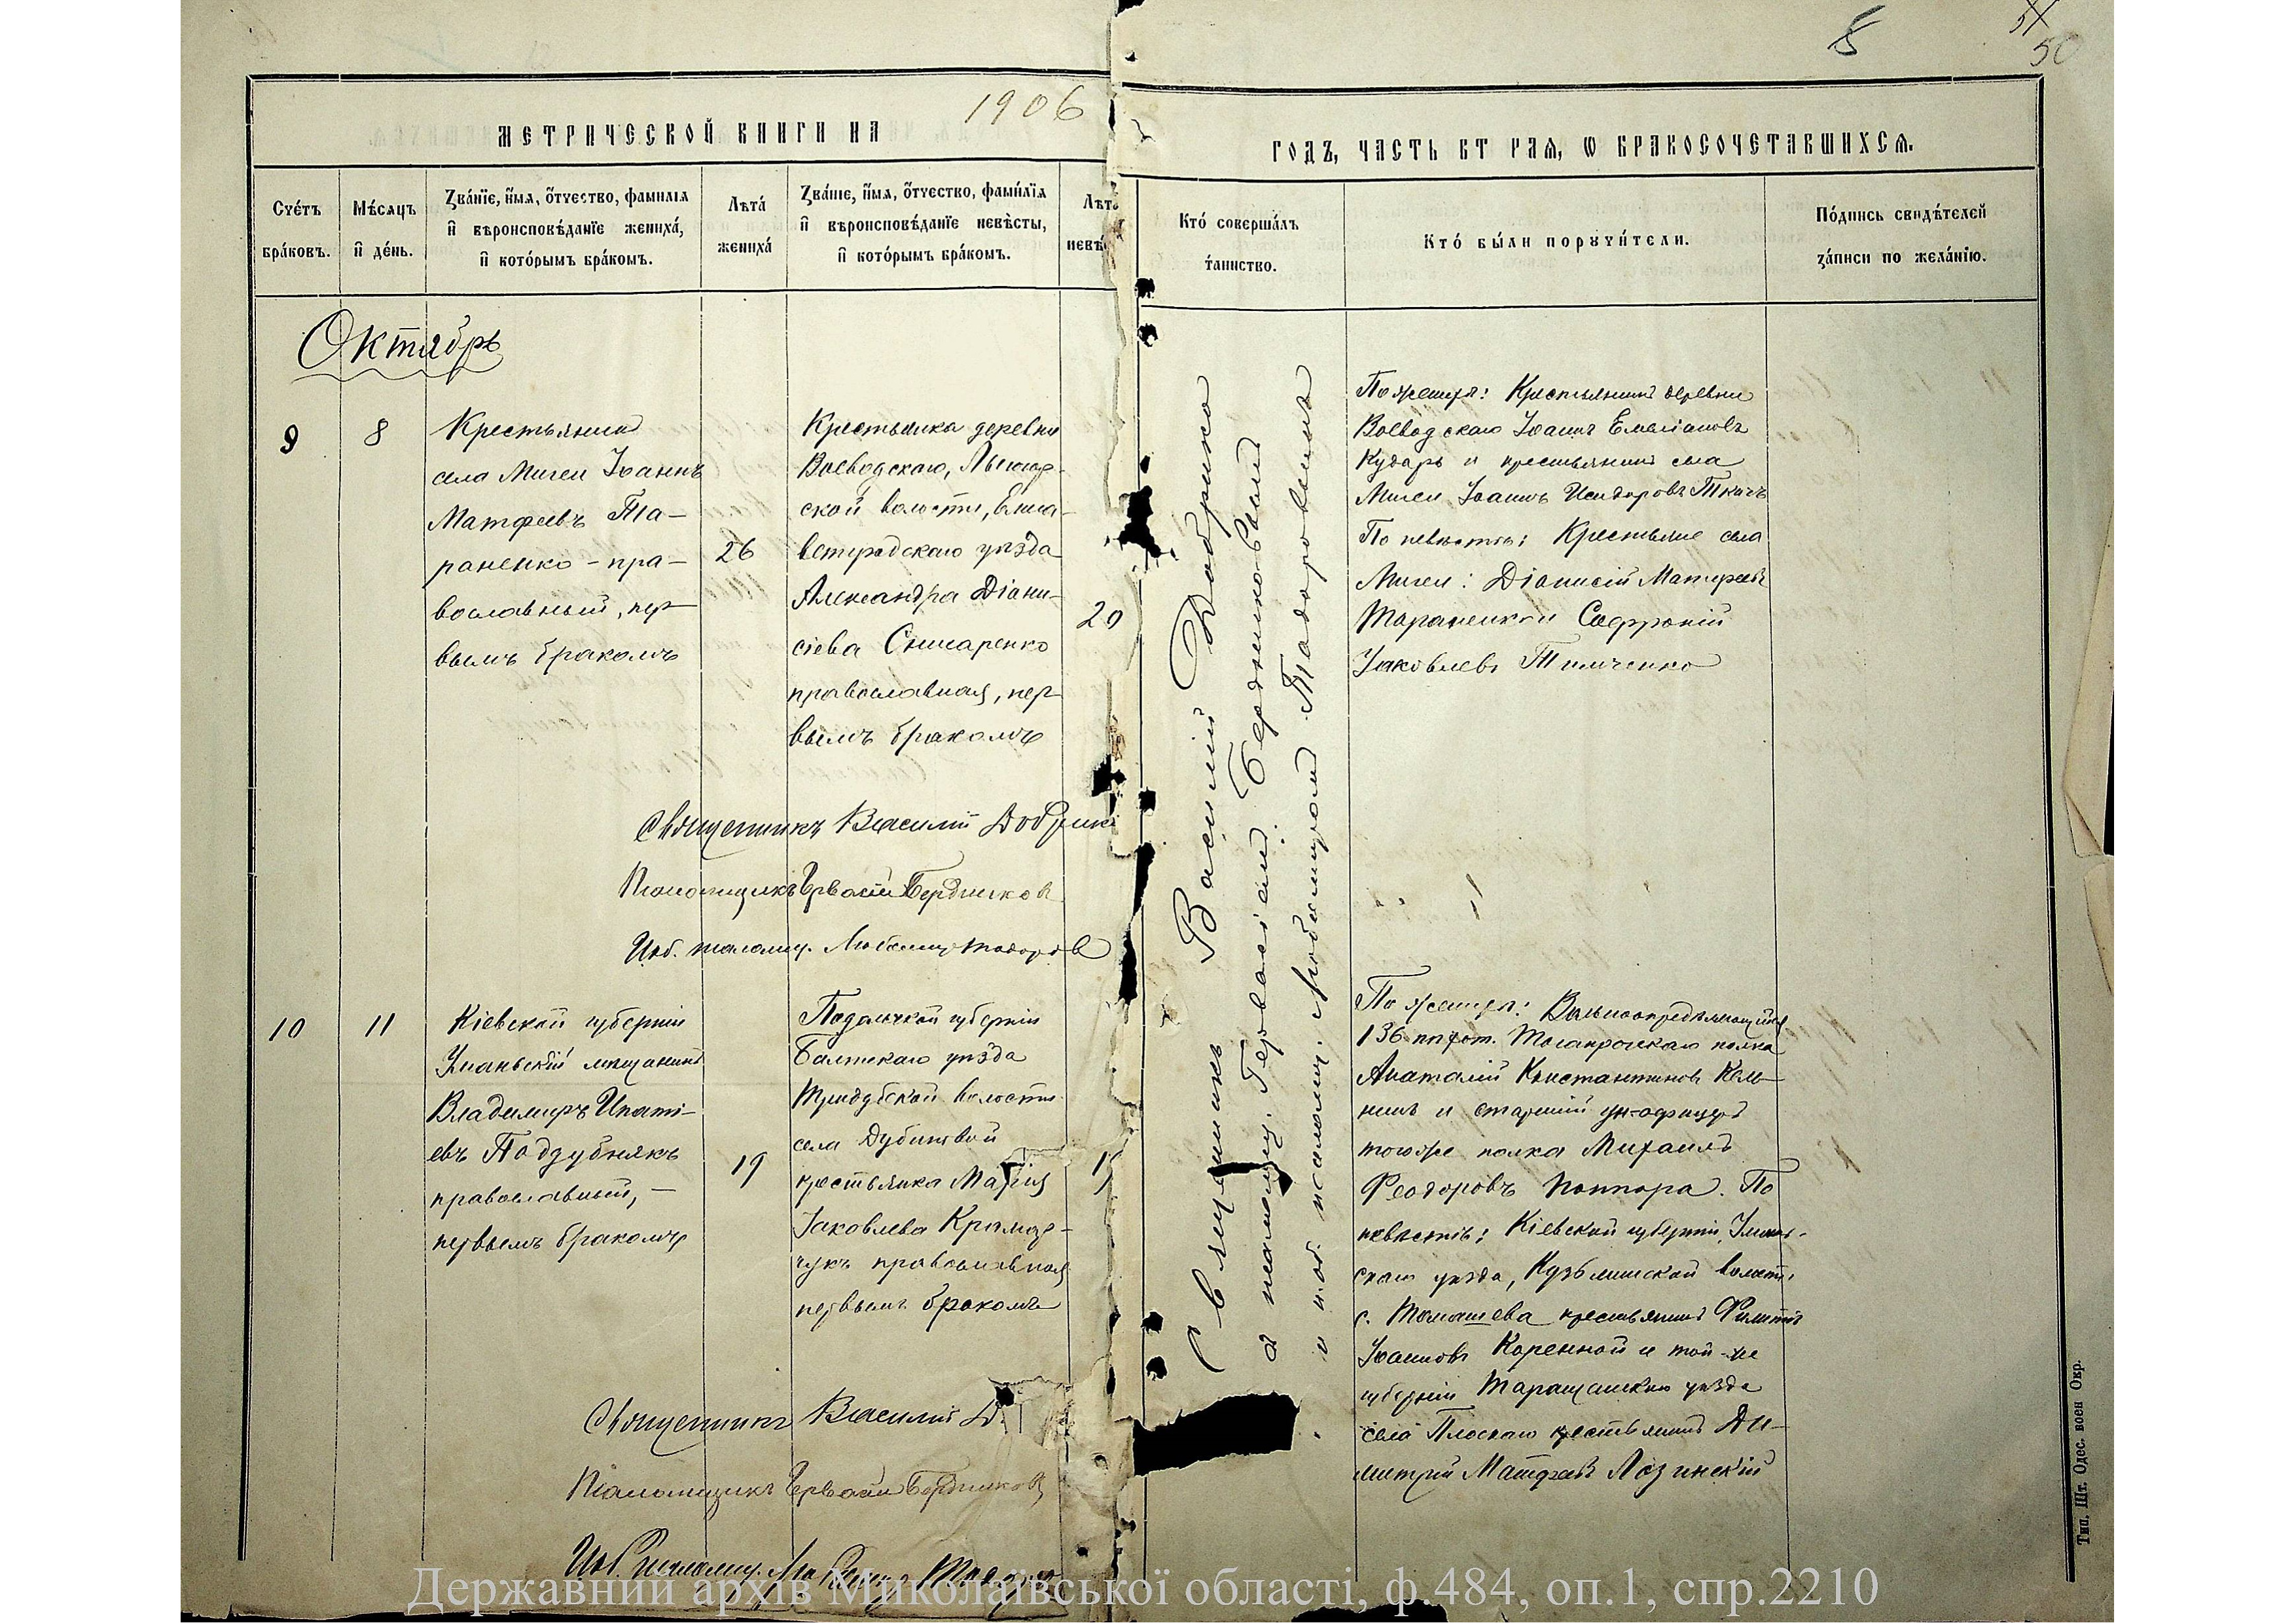 8
51
50
1906
МЕТРИЧЕСКОЙ КНИГИ НА
ГОДЪ, ЧАСТЬ ВТ РАЯ, Ѡ БРАКОСОЧЕТАВШИХСЯ.
Счетъ браковъ.
Мѣсяцъ и день.
Званіе, имя, отчество, фамилія
и вѣроисповѣданіе жениха,
и которымъ бракомъ.
Лѣта
жениха
Званіе, имя, отчество, фамилія
и вѣроисповѣданіе невѣсты,
и которымъ бракомъ.
Лѣта
невѣ
Кто совершалъ
таинство.
Кто были поручители.
Подпись свидѣтелей
записи по желанію.
Октябрь
9
8
Крестьянинъ
села Мигеи Іоаннъ
Матѳеевъ Та-
раненко - пра-
вославный, пер-
вымъ бракомъ
26
Крестьянка деревни
Воеводскаго, Лысогор-
ской волости, Елиса-
ветградскаго уѣзда
Александра Діони-
сіева Снисаренко
православная, пер-
вымъ бракомъ
20
Священникъ Василій Добрянко
а псаломщ. Гервасіемъ Бердниковымъ
и и.об. псаломщ. Любомиромъ Тодоровымъ
По женихѣ: Крестьянинъ деревни
Воеводскаго Іоаннъ Емеліановъ
Кударь и крестьянинъ села
Мигеи Іоаннъ Исидоровъ Ткачъ
По невѣстѣ: Крестьяне села
Мигеи: Діонисій Матѳеевъ
Тараненко и Софроній
Іаковлевъ Тимченко
Священникъ Василій
Псаломщикъ Гервасій Бердниковъ
И.об. псаломщ. Любомиръ Тодоровъ
10
11
Кіевской губерніи
Уманьскій мѣщанинъ
Владимиръ Игнаті-
евъ Поддубнякъ
православный, -
первымъ бракомъ
19
Подольской губерніи
Балтскаго уѣзда
Тридубской волости
села Дубиновой
крестьянка Марія
Іаковлева Крамар-
чукъ православная
первымъ бракомъ
По женихѣ: Вольноопредѣляющійся
136 пѣхот. Таганрогскаго полка
Анатолій Константиновъ
и старшій ун-офицеръ
того же полка Михаилъ
Ѳеодоровъ Поппора. По
невѣстѣ: Кіевской губерніи, Умань-
скаго уѣзда, Кузьминской волости
с. Томашевка крестьянинъ Филиппъ
Іоанновъ Коренной и той-же
губерніи Таращанскаго уѣзда
села Плоскаго крестьянинъ Ди-
митрій Матѳеевъ Лозинскій
Священникъ Василій Д
Псаломщикъ Гервасій Бердниковъ
И.об. псаломщ. Любомиръ Тодоровъ
Тип. Шт. Одес. воен Окр.
Державний архів Миколаївської області, ф.484, оп.1, спр.2210